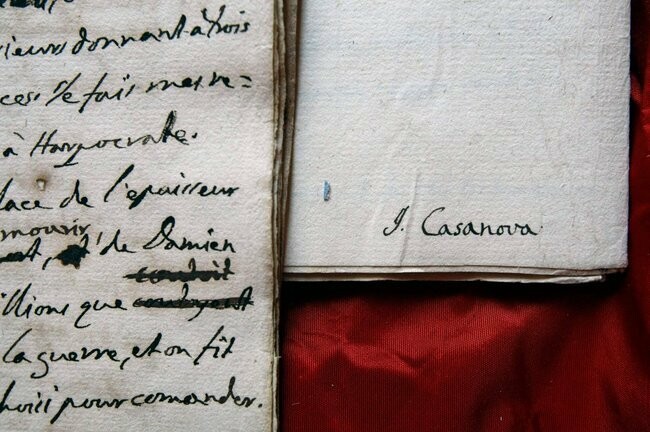 rieurs donnant à trois
ces. Je fais mes re=
à Harpocrate.
lace de l'epaisseur
mourir
de Damien
llions que
la guerre, et on fit
hoisi pour comander.
J. Casanova